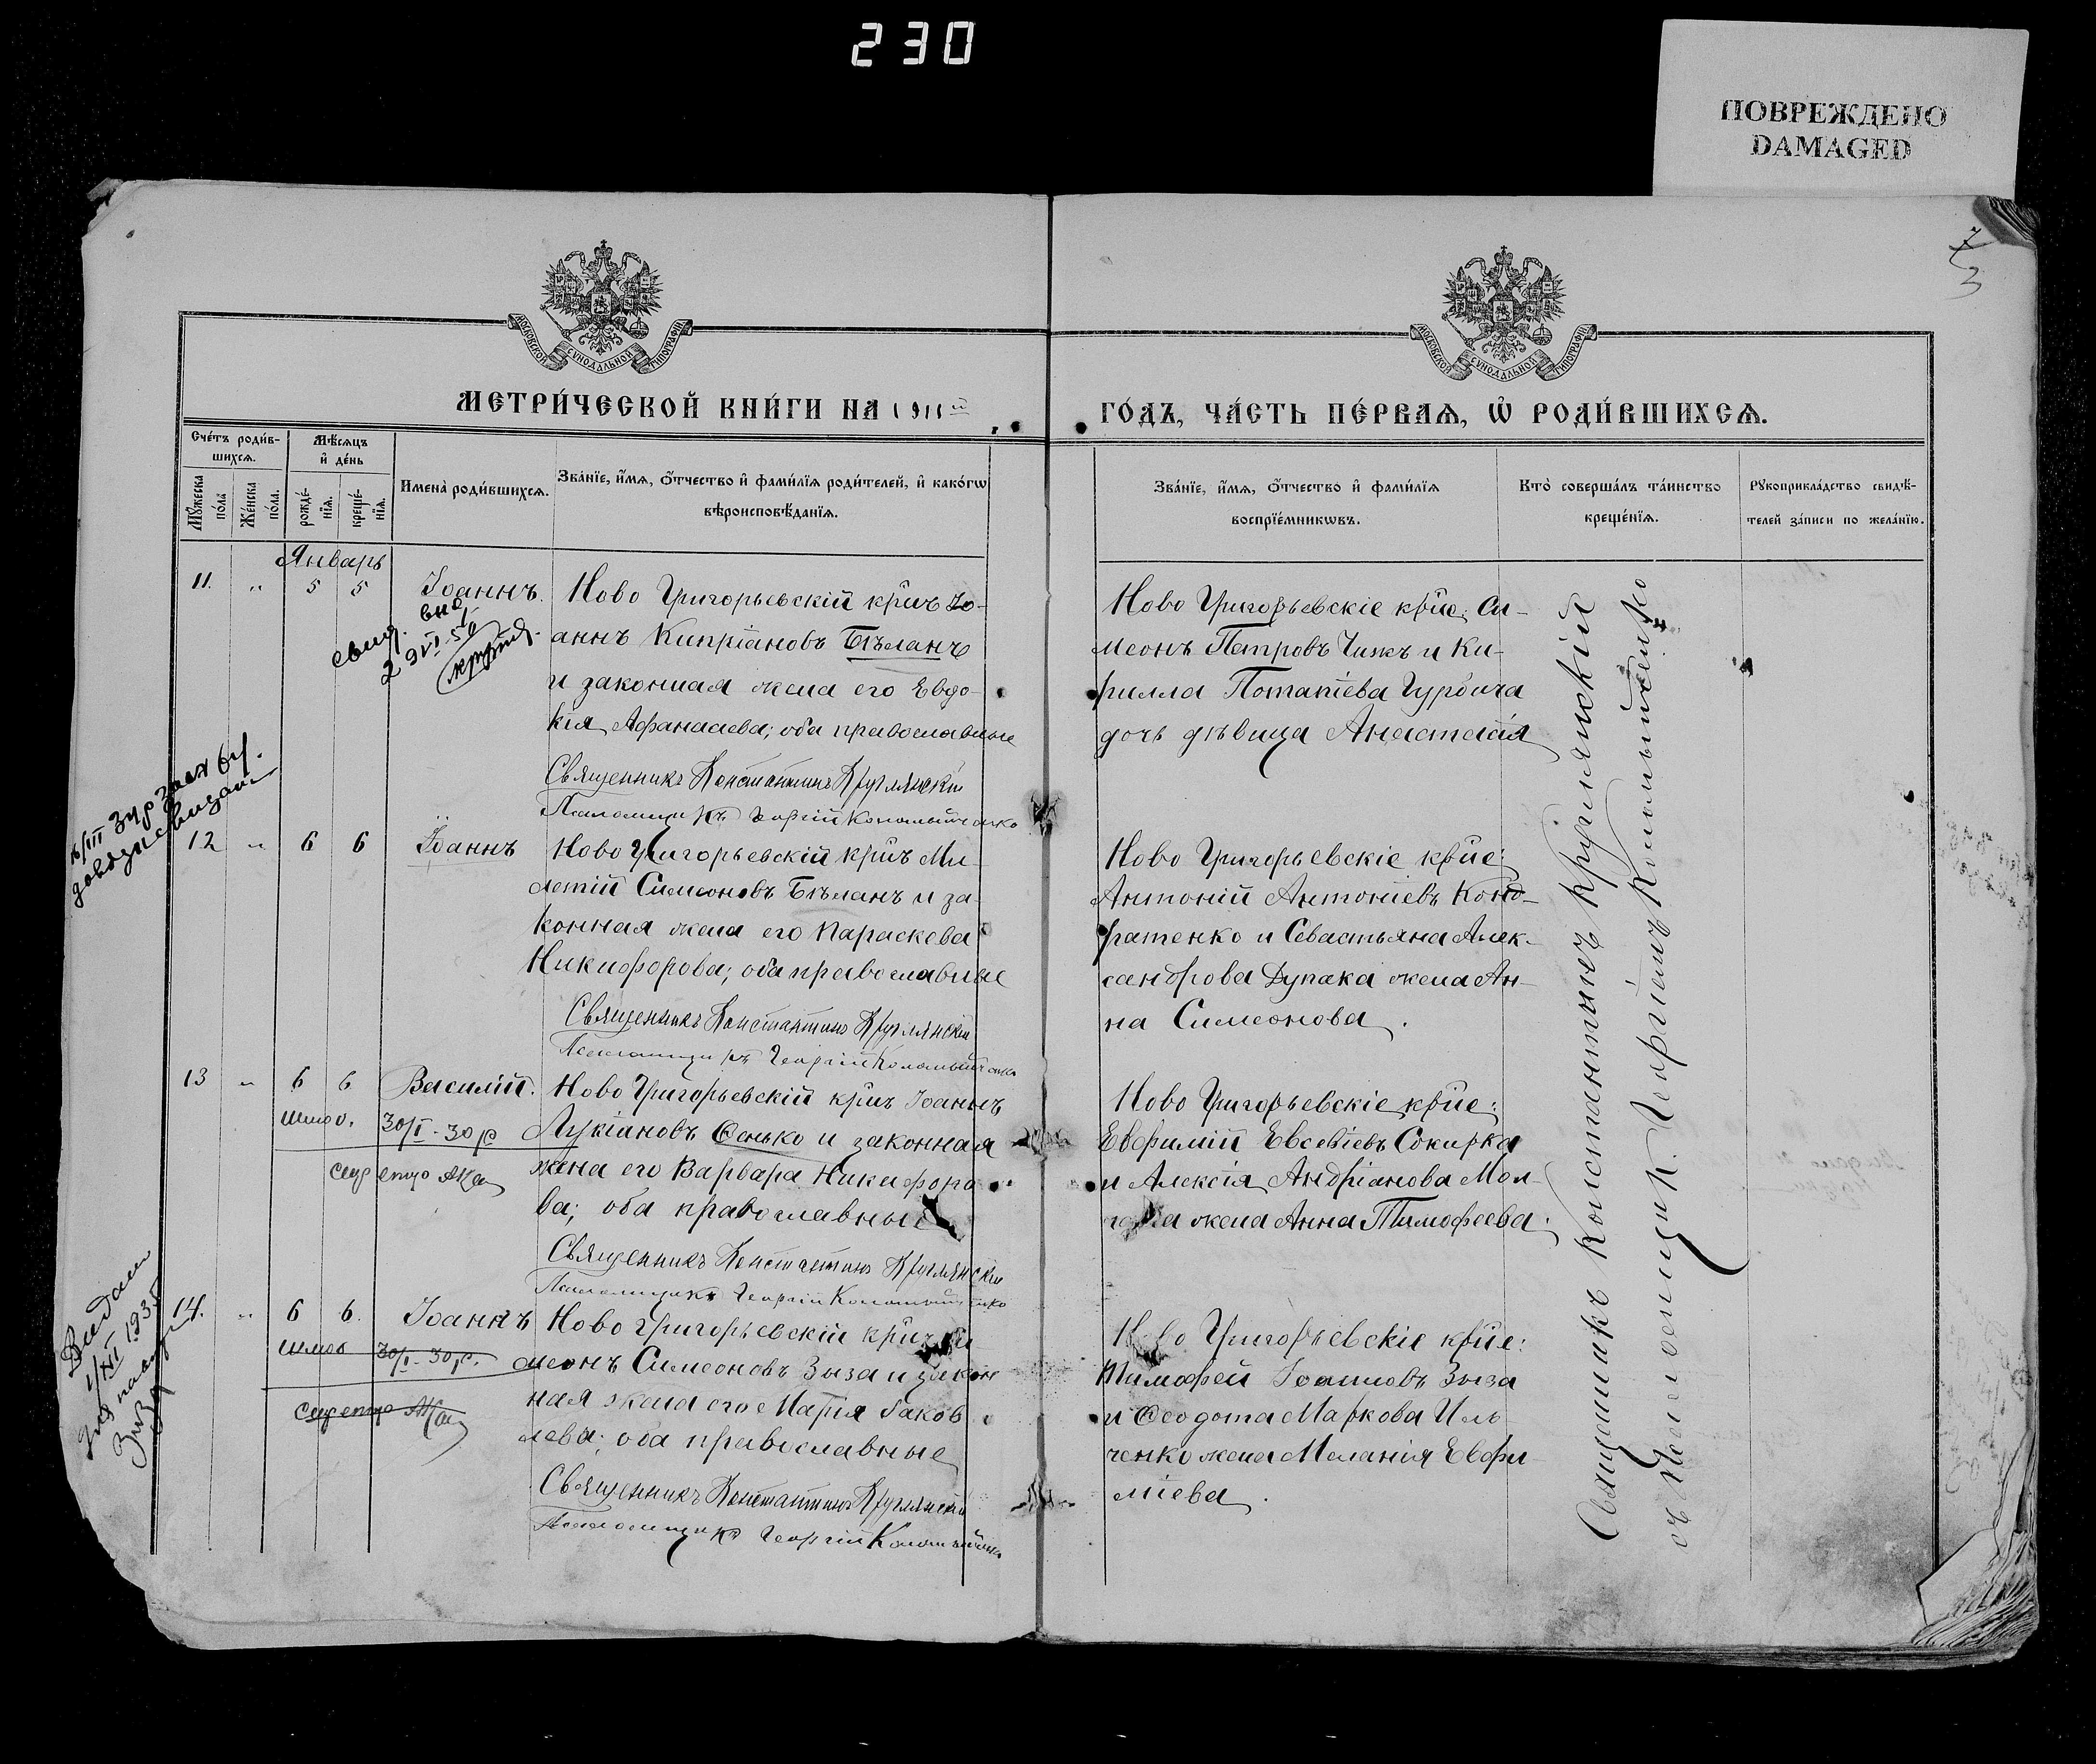 230
ПОВРЕЖДЕНО
DAMAGED
3
МОСКОВСКОЙ СУНОДАЛЬНОЙ ТИПОГРАФІИ
МОСКОВСКОЙ СУНОДАЛЬНОЙ ТИПОГРАФІИ
МЕТРИ́ЧЕСКОЙ КНИ́ГИ НА 1911й
ГО́ДЪ, ЧА́СТЬ ПЕ́РВАѦ, Ѡ҆ РОДИ́ВШИХСѦ.
Сче́тъ роди́в-
шихсѧ.
Мꙋ́жеска по́ла
Же́нска по́ла.
Мѣ́сѧцъ
и҆ де́нь
рожде́-
нїѧ.
креще́-
нїѧ.
Имена̀ роди́вшихсѧ.
Зва́нїе, и҆́мѧ, ѻ҆́тчество и҆ фами́лїѧ роди́телей, и҆ како́гѡ
вѣроисповѣ́данїѧ.
Зва́нїе, и҆́мѧ, ѻ҆́тчество и҆ фами́лїѧ
воспрїе́мникѡвъ.
Кто̀ соверша́лъ та́инство
креще́нїѧ.
Рꙋкоприкла́дство свидѣ́-
телей за́писи по жела́нїю.
Январь
11. " 5 5 Іоаннъ.
Ново Григорьевскій кр҃нъ Іо-
аннъ Кипріановъ Бѣланъ
и законная жена его Евдо-
кія Афанасьева; оба православные
Священникъ Константинъ Круглянскій
Псаломщикъ Георгій Коломыйченко
Ново Григорьевскіе кр҃не: Си-
меонъ Петровъ Чижъ и Ки-
рилла Потапіева Гурбича
дочь дѣвица Анастасія
12 " 6 6 Іоаннъ
Ново Григорьевскій кр҃нъ Ми-
летій Симеоновъ Бѣланъ и за-
конная жена его Параскева
Никифорова; оба православные
Священникъ Константинъ Круглянскій
Псаломщикъ Георгій Коломыйченко
Ново Григорьевскіе кр҃не:
Антоній Антоніевъ Конд-
ратенко и Севастьяна Алек-
сандрова Дупака жена Ан-
на Симеонова.
13 " 6 6 Василій.
Ново Григорьевскій кр҃нъ Іоаннъ
Лукіановъ Сенько и законная
жена его Варвара Никифоро
ва; оба православные
Священникъ Константинъ Круглянскій
Псаломщикъ Георгій Коломыйченко
30/I - 30 р
Ново Григорьевскіе кр҃не:
Евфимій Евсевіевъ Сокирка
и Алексія Андріанова Мол-
жена Анна Тимофеева.
14. " 6 6. Іоаннъ
Ново Григорьевскій кр҃нъ Си
меонъ Симеоновъ Зыза и закон
ная жена его Марія Іаков
лева; оба православные
Священникъ Константинъ Круглянскій
Псаломщикъ Георгій Коломыйченко
30/I - 30 р.
Ново Григорьевскіе кр҃не:
Тимофей Іоанновъ Зыза
и Ѳеодота Маркова Иль-
ченко жена Меланія Евфи-
міева.
Священникъ Константинъ Круглянскій
съ Псаломщик. Георгіемъ Коломыйченко